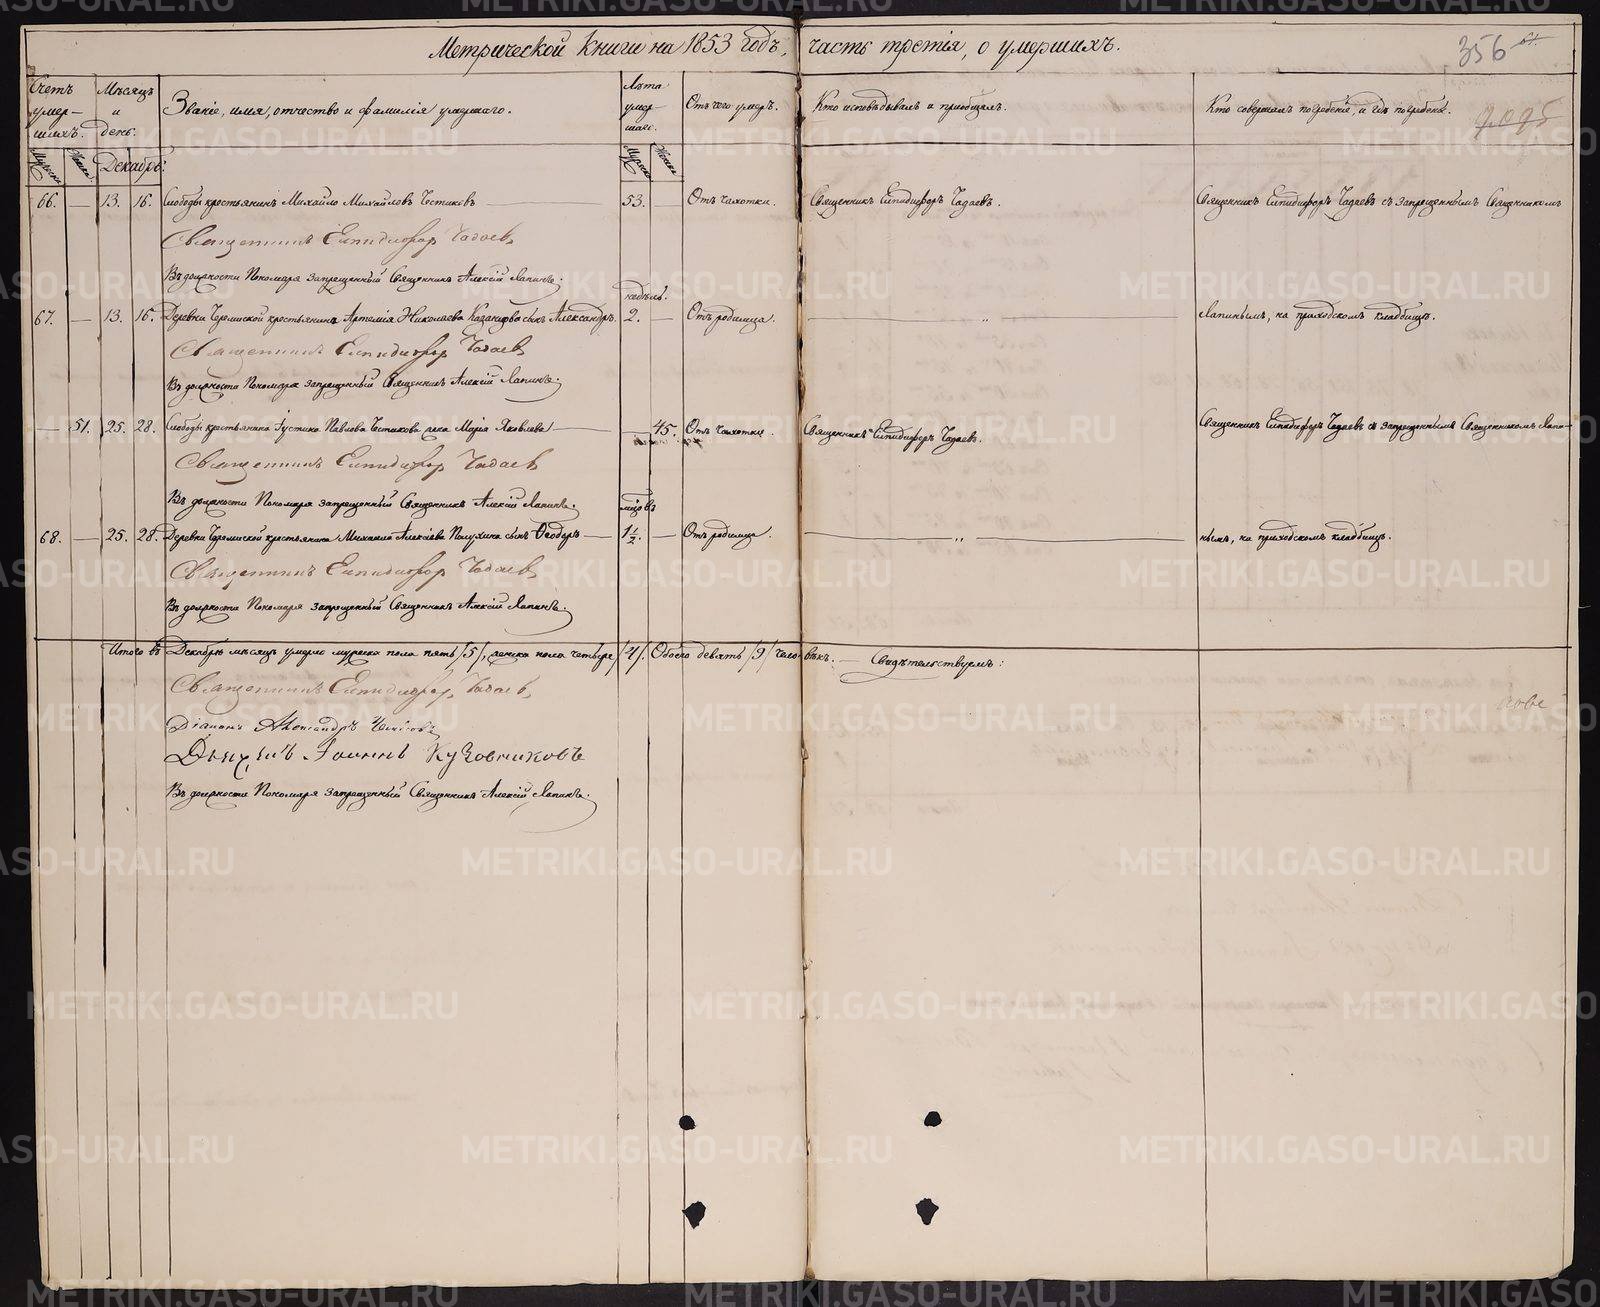 Метрической Книги на 1853 годъ, часть третія, о умершихъ.
356
Счетъ умер-шихъ.
Мѣсяцъ и день.
Званіе, имя, отчество и фамилія умершаго.
Лѣта умер-шаго.
Отъ чего умеръ.
Кто исповѣдывалъ и пріобщалъ.
Кто совершалъ погребеніе, и гдѣ погребены.
Мужеска Женска Декабрь. Мужеска Женска
66. — 13. 16. Слободы крестьянинъ Михайло Михайловъ 53. Отъ чахотки. Священникъ Елпидифоръ Чадаевъ. Священникъ Елпидифоръ Чадаевъ съ запрещеннымъ Священникомъ
Священникъ Елпидифор Чадаевъ
Въ должности Пономаря запрещенный Священникъ Алексій Лапинъ.
недѣль.
67. — 13. 16. Деревни крестьянина Артемія Николаева Казанцова сынъ Александръ. 2. — Отъ родимца. — „ — Лапинымъ, на приходскомъ кладбищѣ.
Священникъ Елпидифор Чадаевъ
Въ должности Пономаря запрещенный Священникъ Алексій Лапинъ.
— 51. 25. 28. Слободы крестьянина Іустина Павлова жена Марія Яковлева — 45. Отъ чахотки. Священникъ Елпидифоръ Чадаевъ. Священникъ Елпидифоръ Чадаевъ съ запрещеннымъ Священникомъ Лапи-
Священникъ Елпидифор Чадаевъ
Въ должности Пономаря запрещенный Священникъ Алексій Лапинъ.
68. — 25. 28. Деревни крестьянина Михаила Алексіева Полухина сынъ Ѳеодоръ — 1½. — Отъ родимца. — „ — нымъ, на приходскомъ кладбищѣ.
Священникъ Елпидифор Чадаевъ
Въ должности Пономаря запрещенный Священникъ Алексій Лапинъ.
Итого въ Декабрѣ мѣсяцѣ умерло мужеска пола пять /5/, женска пола четыре /4/. Обоего девять /9/ человѣкъ. — Свидѣтельствуемъ:
Священникъ Елпидифор Чадаевъ
Діаконъ Александръ
Дьячекъ Іоаннъ Кузовниковъ
Въ должности Пономаря запрещенный Священникъ Алексій Лапинъ.
METRIKI.GASO-URAL.RU